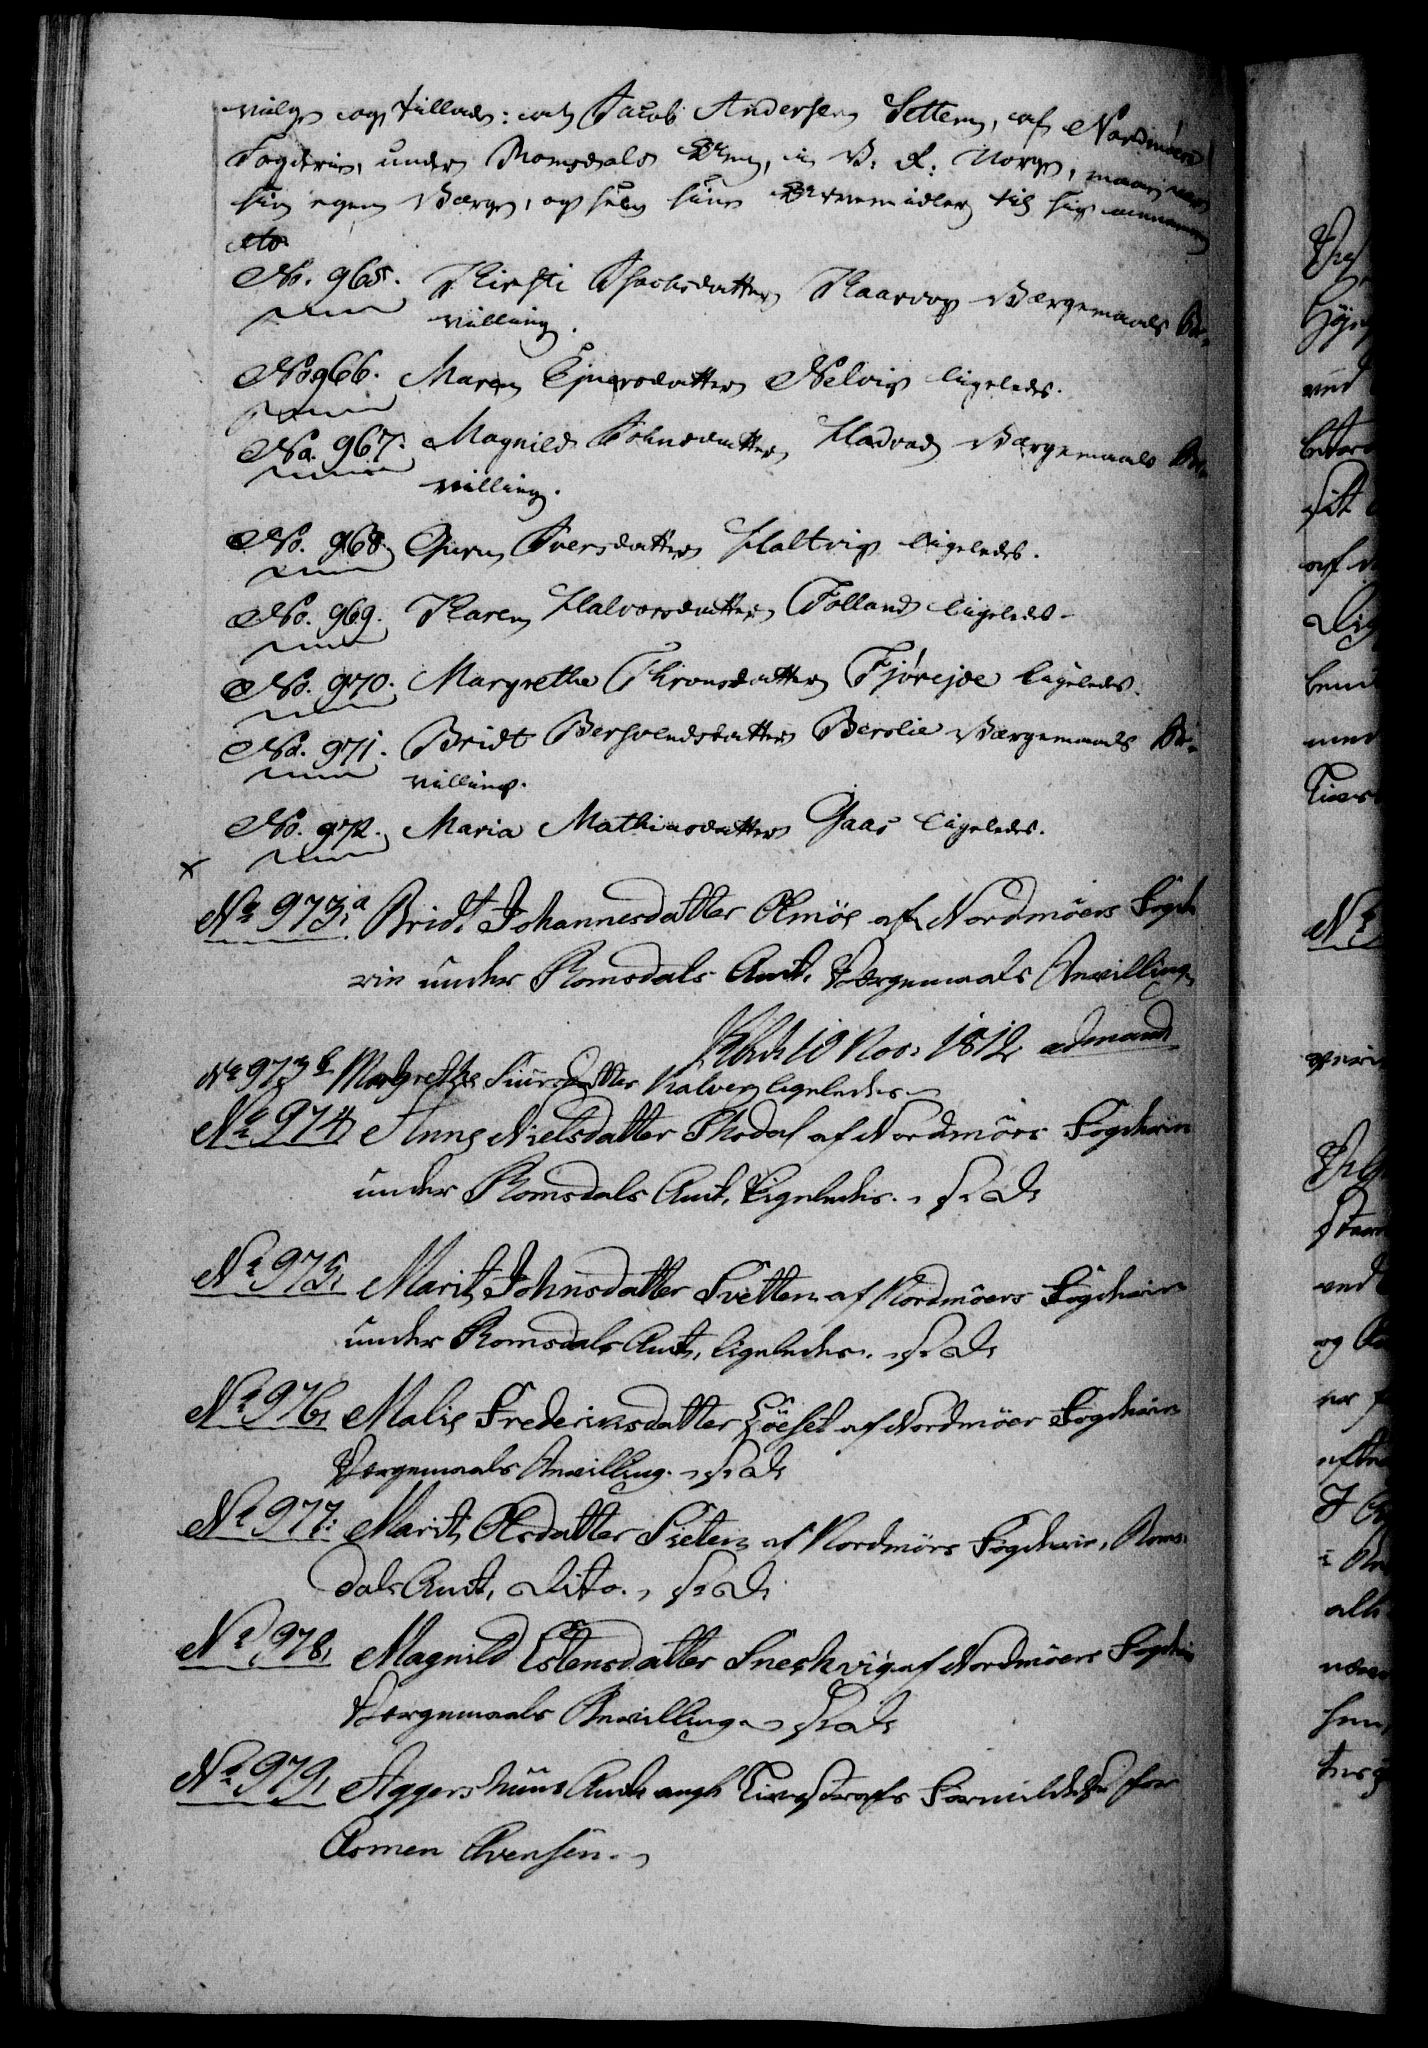 vilge og tillade: at Jacob Andersen Settem, af Nordmøers
Fogderie, under Romsdals Amt, i V. R. Norge, maae være
sin egen Værge, og selv sine Arvemidler til sig annamme
etc.
No. 965. Kirsti Jsachsdatter Kaarvog Værgemaals Be-
villing.
No 966. Maren Ejnersdatter Nelvig ligeledes.
No. 967. Magnild Johnsdatter Hadvad Værgemaals Be-
villing.
No. 968. Guru Iversdatter Haltvig ligeledes.
No. 969. Karen Halvorsdatter Folland ligeledes.
No. 970. Margrethe Thronsdatter Fjørejde ligeledes.
No. 971. Bridt Bersvendsdatter Berslie Værgemaals Be-
villing.
No. 972. Maria Mathiasdatter Gaas ligeledes.
x
No 973. a Brid. Johannesdatter Olmöe af Nordmöers Fogde
rie under Romsdals Amt, Værgemaals Bevilling
Kbh. d. 10 Nov: 1812 ad mand.
No 973 b Margrethe Siursdatter Kalven ligeledes.
No 974 Anne Nielsdatter Skodal af Nordmörs Fogderie
under Romsdals Amt, ligeledes. s: D:
No 975, Marit Johnsdatter Svetten af Nordmöers Fogderie
under Romsdals Amt, ligeledes. s: D:
No 976, Malie Frederiksdatter Höeset af Nordmöer Fogderie
Værgemaals Bevilling. s: D:
No 977: Marit Olsdatter Sieten af Nordmörs Fogderie, Roms-
dals Amt, Dito. s: D:
No 978, Magnild Estensdatter Sneskvig af Nordmöers Fogderie
Værgemaals Bevilling s: D:
No 979, Aggershuus Amt angl Livsstrafs Formildelse for
Asmen Evensen.